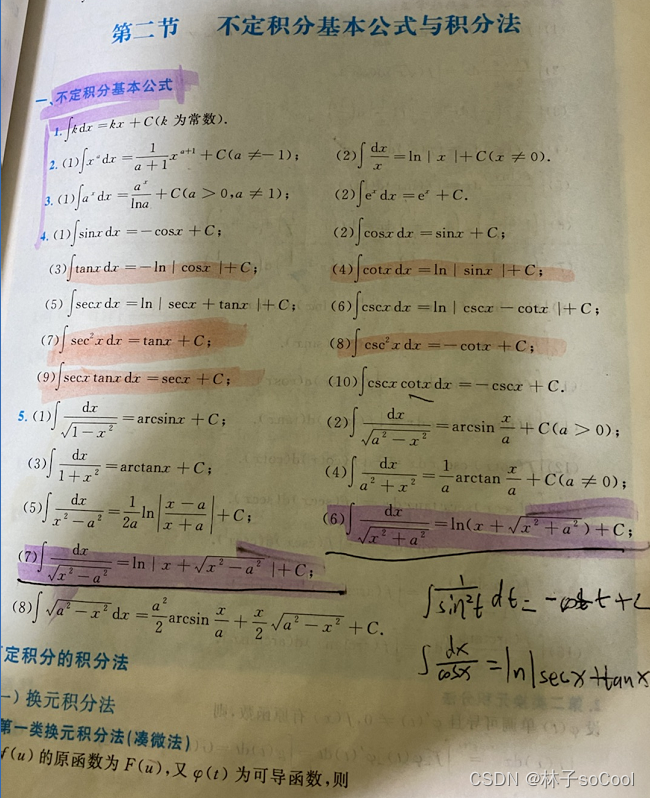 第二节 不定积分基本公式与积分法
一、不定积分基本公式
1. ∫kdx = kx + C(k 为常数).
2. (1)∫x^a dx = \frac{1}{a+1}x^{a+1} + C(a ≠ -1); (2)∫\frac{dx}{x} = ln | x | + C(x ≠ 0).
3. (1)∫a^x dx = \frac{a^x}{lna} + C(a > 0, a ≠ 1); (2)∫e^x dx = e^x + C.
4. (1)∫sinx dx = -cosx + C; (2)∫cosx dx = sinx + C;
(3)∫tanx dx = -ln | cosx | + C; (4)∫cotx dx = ln | sinx | + C;
(5)∫secx dx = ln | secx + tanx | + C; (6)∫cscx dx = ln | cscx - cotx | + C;
(7)∫sec^2 x dx = tanx + C; (8)∫csc^2 x dx = -cotx + C;
(9)∫secx tanx dx = secx + C; (10)∫cscx cotx dx = -cscx + C.
5. (1)∫\frac{dx}{\sqrt{1-x^2}} = arcsinx + C; (2)∫\frac{dx}{\sqrt{a^2-x^2}} = arcsin\frac{x}{a} + C(a > 0);
(3)∫\frac{dx}{1+x^2} = arctanx + C; (4)∫\frac{dx}{a^2+x^2} = \frac{1}{a}arctan\frac{x}{a} + C(a ≠ 0);
(5)∫\frac{dx}{x^2-a^2} = \frac{1}{2a}ln|\frac{x-a}{x+a}| + C; (6)∫\frac{dx}{\sqrt{x^2+a^2}} = ln(x + \sqrt{x^2+a^2}) + C;
(7)∫\frac{dx}{\sqrt{x^2-a^2}} = ln | x + \sqrt{x^2-a^2} | + C;
(8)∫\sqrt{a^2-x^2} dx = \frac{a^2}{2}arcsin\frac{x}{a} + \frac{x}{2}\sqrt{a^2-x^2} + C.
∫\frac{1}{sin^2 t} dt = -cot t + C
∫\frac{dx}{cosx} = ln|secx+tanx
定积分的积分法
一) 换元积分法
第一类换元积分法(凑微法)
f(u) 的原函数为 F(u), 又 φ(t) 为可导函数, 则
CSDN @林子soCool